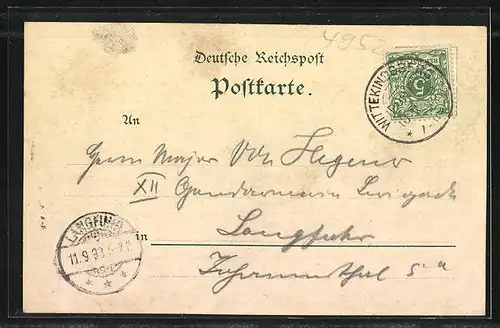 4952
Deutsche Reichspost
Postkarte.
5
WITTEKINDSBERG
An
Herrn Major
XII Gendarmerie Brigade
LANGFUHR
11.9.93
in Langfuhr
Johannisthal 5